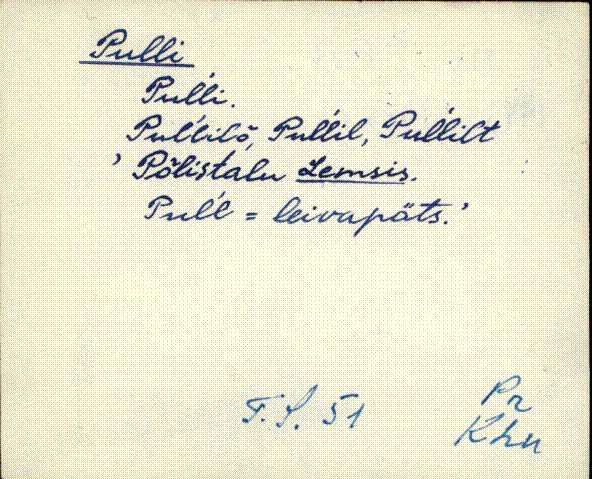 Pulli
Puĺĺi.
Puĺĺilõ, Puĺĺil, Puĺĺilt
'Põlistalu Lemsis.
Puĺĺ = leivapäts.'
T.S. 51
Pr
Khn